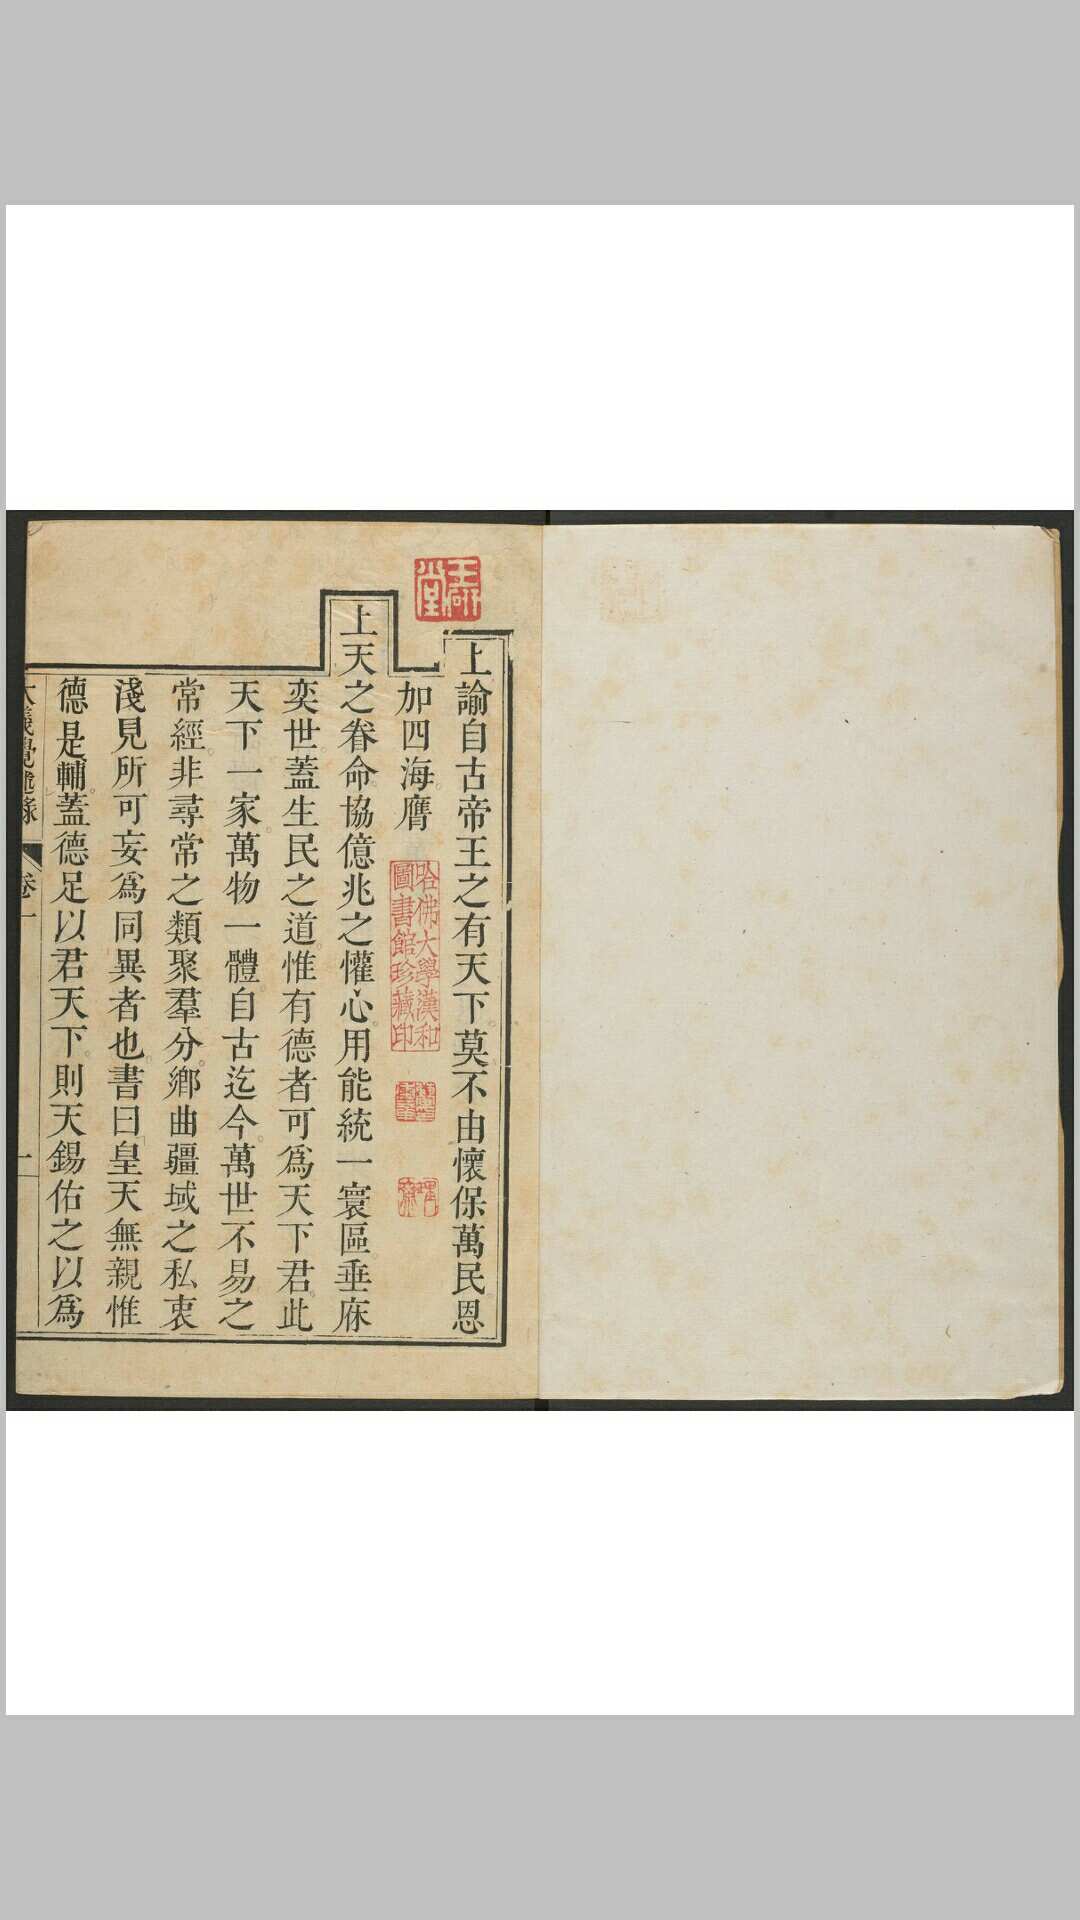 上諭自古帝王之有天下莫不由懷保萬民恩
加四海膺
上天之眷命協億兆之懽心用能統一寰區垂庥
奕世蓋生民之道惟有德者可爲天下君此
天下一家萬物一體自古迄今萬世不易之
常經非尋常之類聚羣分鄉曲疆域之私衷
淺見所可妄爲同異者也書曰皇天無親惟
德是輔蓋德足以君天下則天錫佑之以爲
大義覺迷錄 卷一 一
哈佛大學漢和
圖書館珍藏印